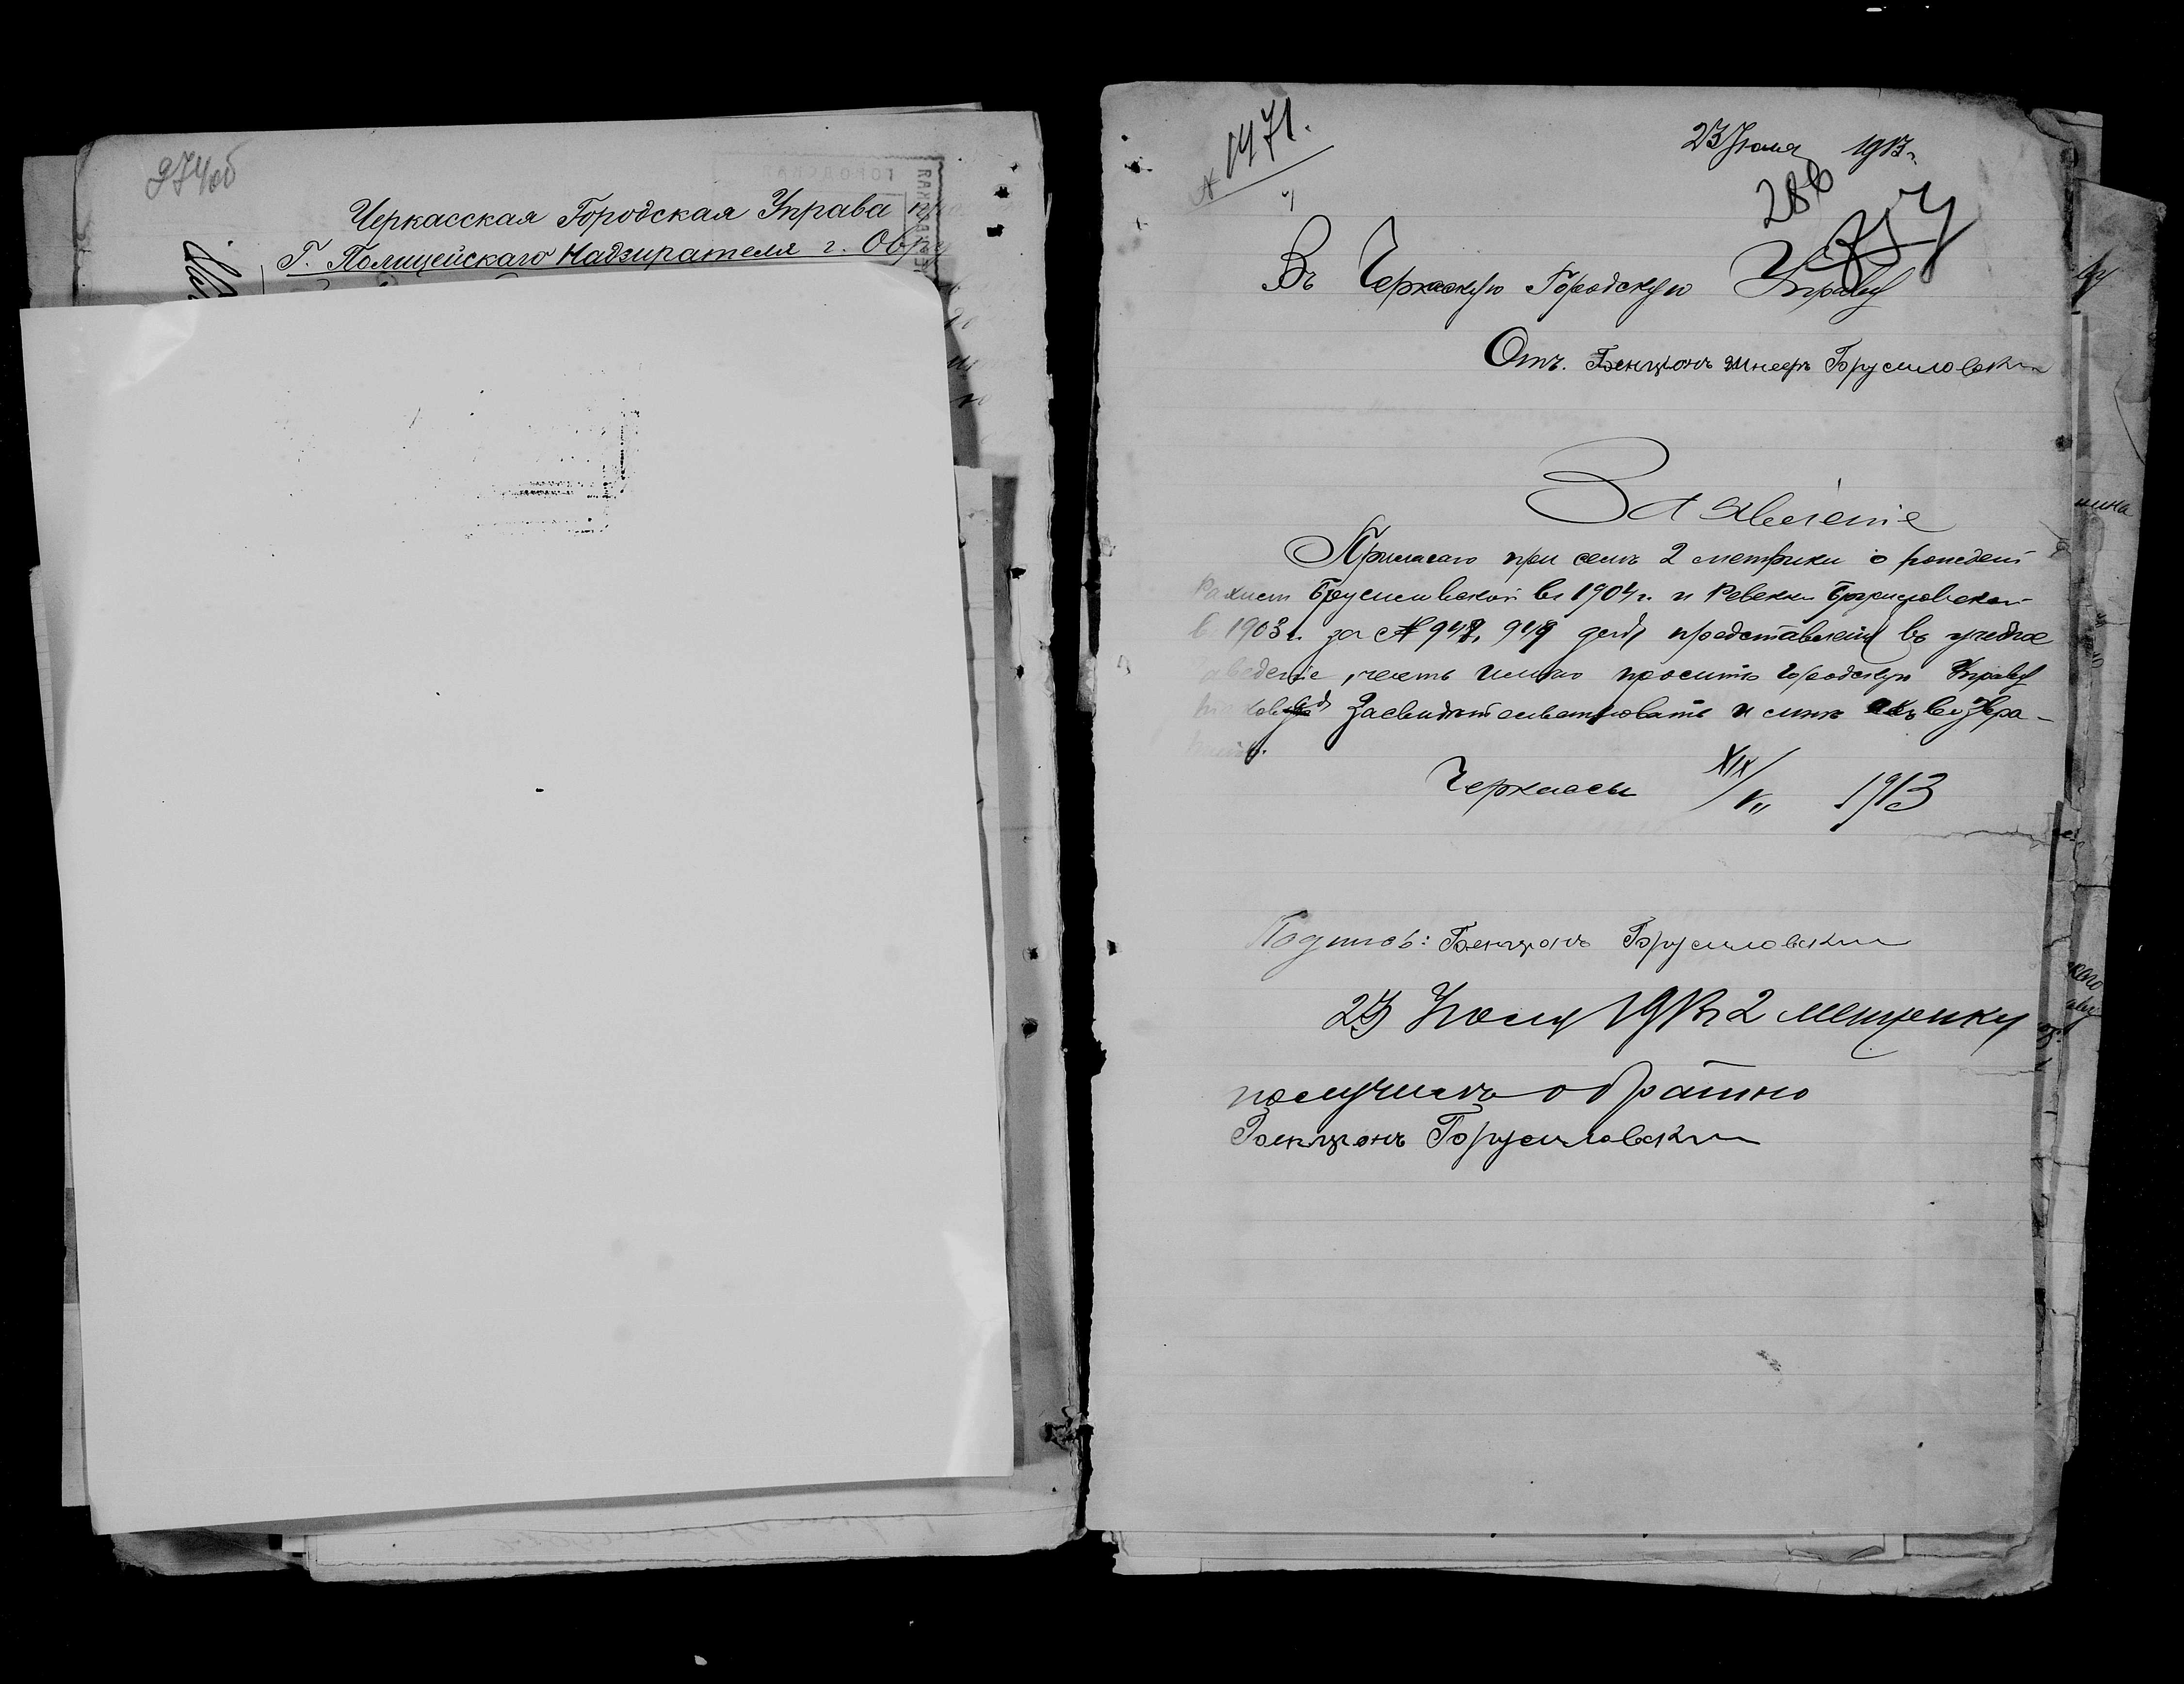 274об
Черкасская Городская Управа
Г. Полицейскаго Надзирателя г.
№ 1471.
23 Июля 1913 г.
286
Въ Черкаскую Городскую Управу
Отъ. Бенціонъ Шнееръ Брусиловски
Заявленіе
Прилагаю при семъ 2 метрики о
Брусиловской въ 1904 г. и Ревекки Брусиловской
в 1903 г. за № 948, 949 для представленія въ учебное
заведеніе, честь имѣю просить Городскую Управу
засвидѣтельствовать и мнѣ ихъ возвра-
Черкассы XIX/VII 1913
Подпись: Бенціонъ Брусиловски
23 Июля 1913 2 метрики
получилъ обратно
Бенціонъ Брусиловски